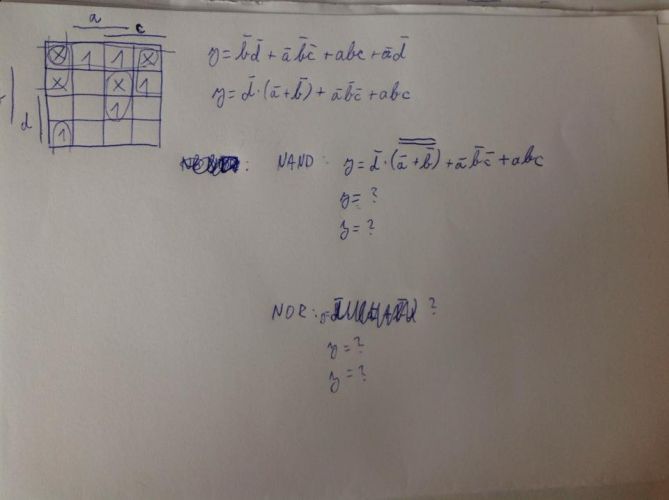 a
c
X 1 1 X
X X 1
1
d
1
y = b̄d̄ + āb̄c̄ + abc + ād̄
y = d̄·(ā+b̄) + āb̄c̄ + abc
: NAND: y = d̄·(ā+b̄) + āb̄c̄ + abc
y = ?
y = ?
NOR: ?
y = ?
y = ?